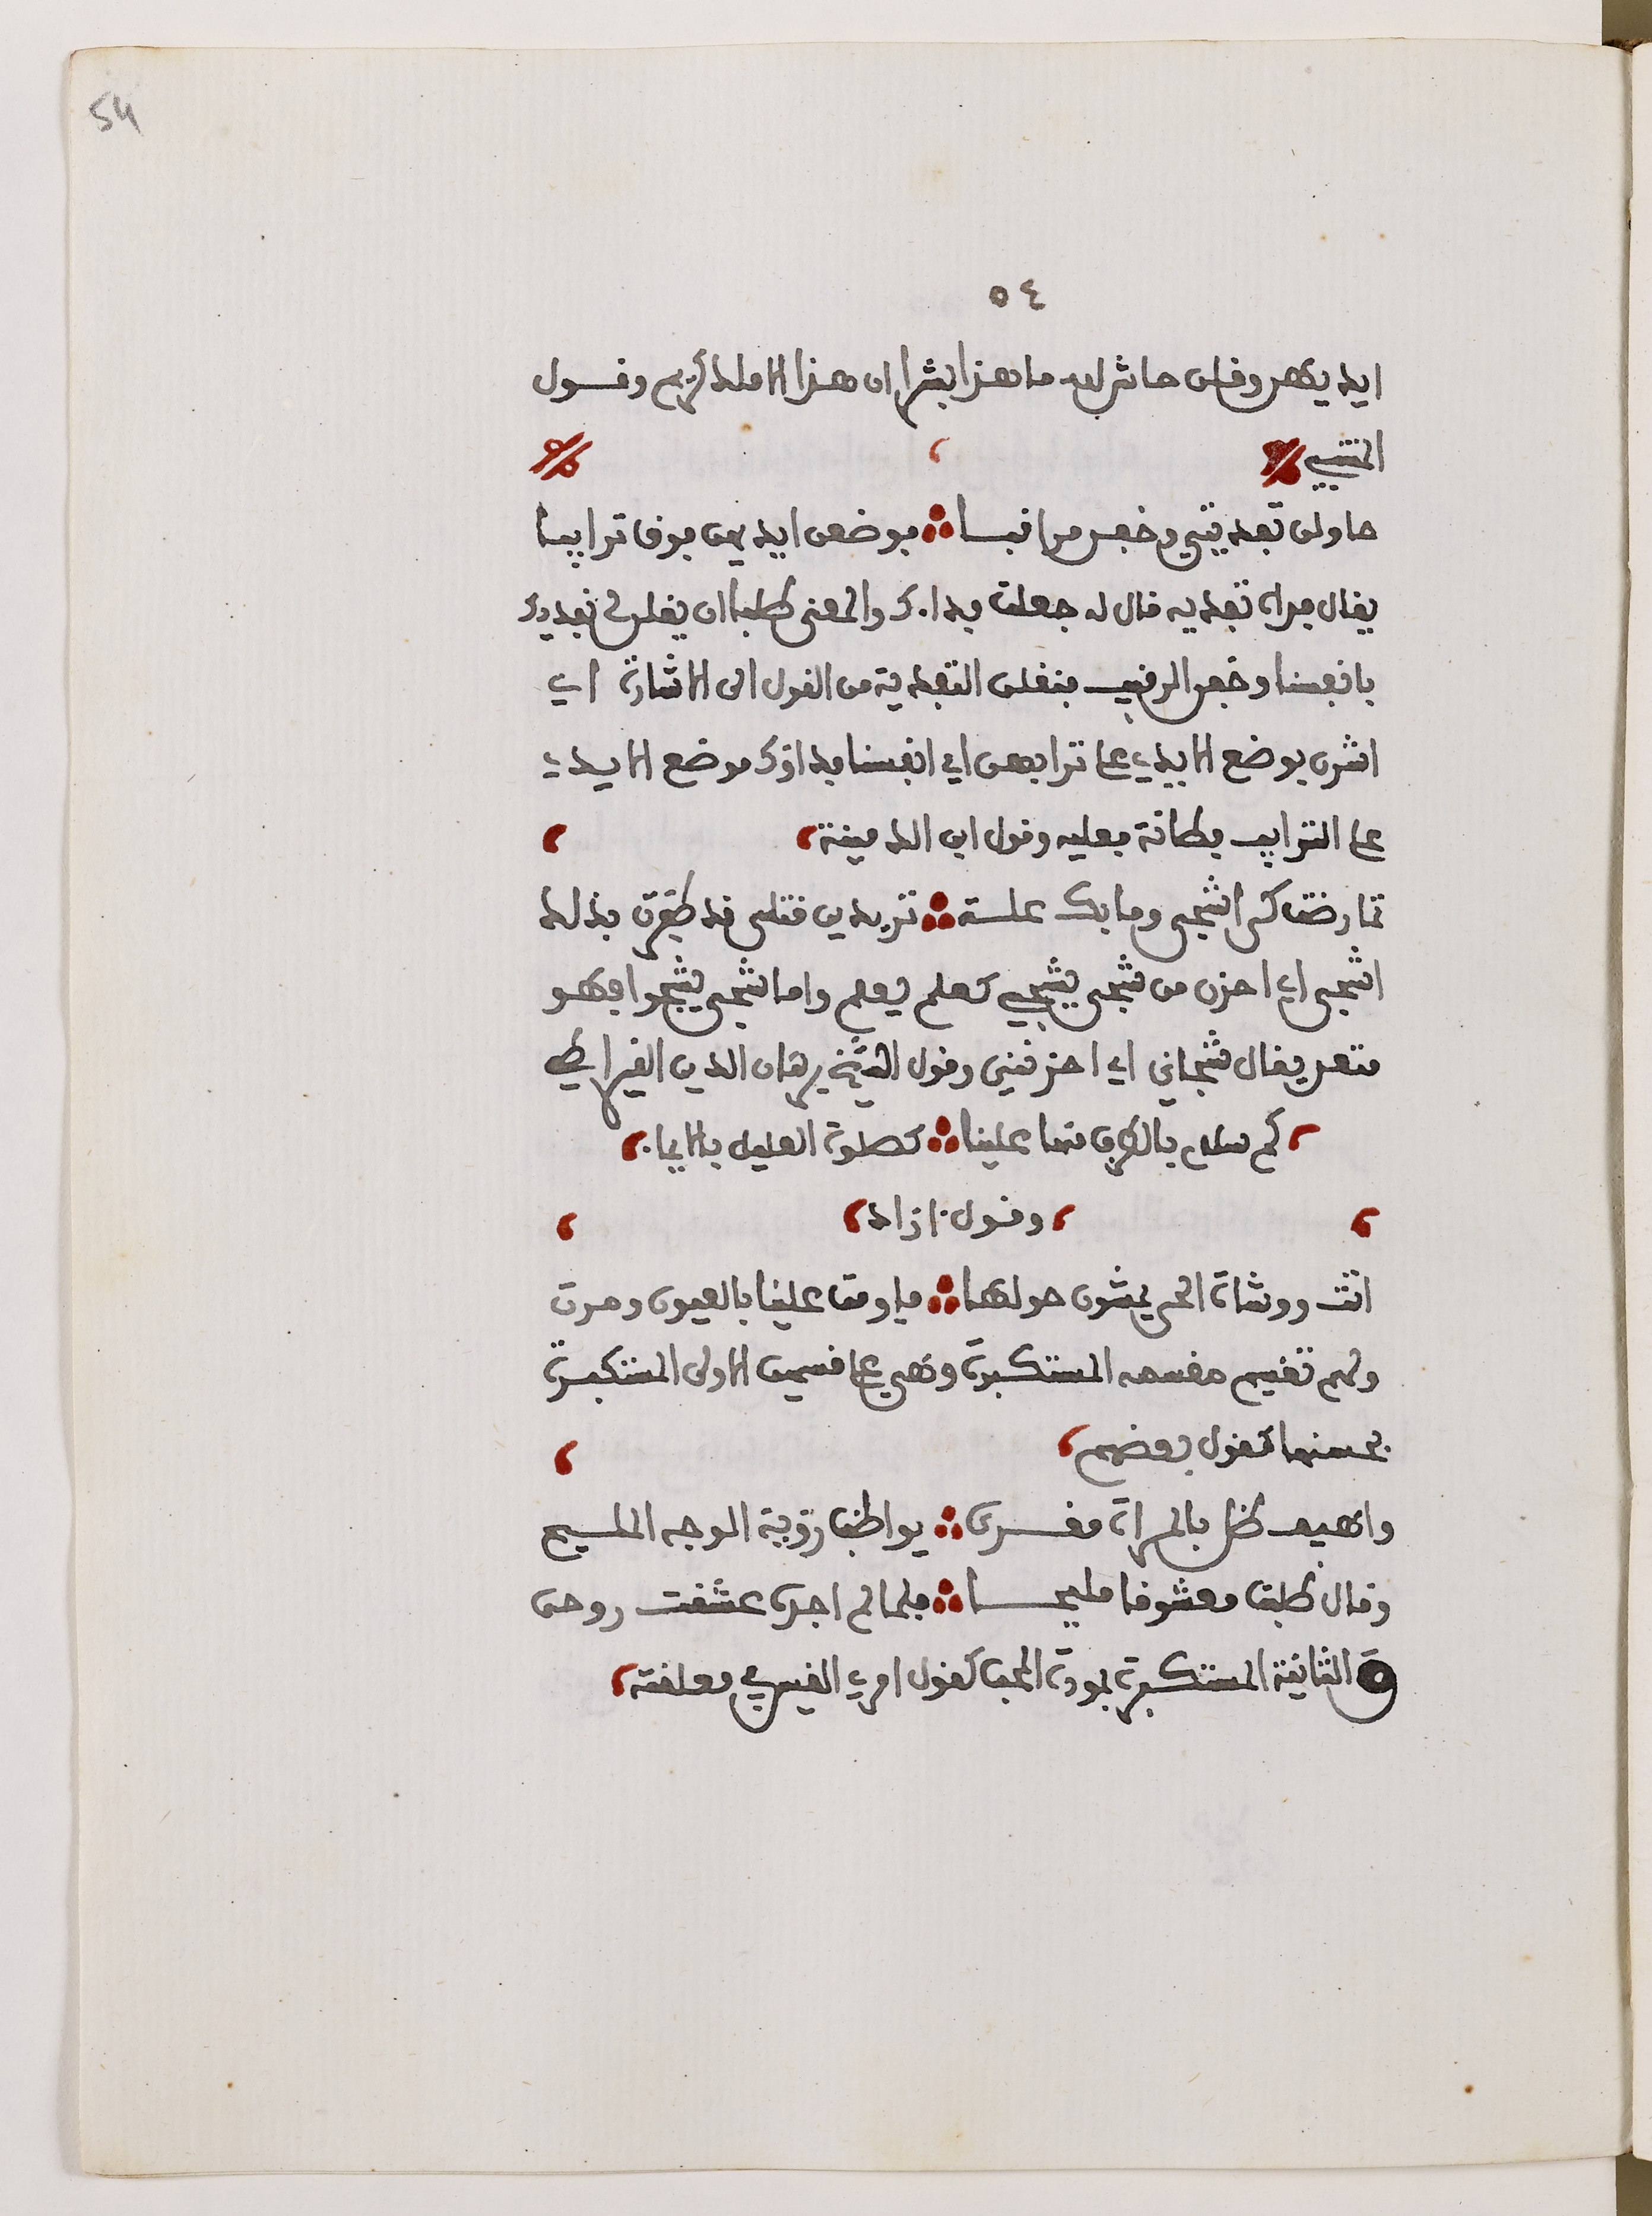 54
٥٤
ايديهن وقلن حاش لله ما هذا بشرا ان هذا الا ملك كريم وقول
المتنبي
حاولن تفديتي وخفن مراقبا فوضعن ايديهن فوق ترايبا
يقال فداه تفديه قال له جعلت فداءك والمعنى طلبن ان يقلن لي نفديك
بانفسنا وخفن الرقيب فنقلن التفدية من القول الى الاشارة اي
اشرن بوضع الايدي على ترايبهن اي انفسنا فداؤك موضع الايدي
على الترايب فكانت فعلية وقول ابن الدمينة
تمارضت كي اشجى وما بك علة تريدين قتلي قد ظفرت بذلك
اشجى اي احزن من شجى يشجى كعلم يعلم واما شجى يشجوا فهو
متعد يقال شجاني اي احزنني وقول الشيخ برهان الدين القيراطي
كم سلام بالطرف منها علينا كصلوة العليل بالايماء
وقول ازاد
اتت ووشاة الحي يمشون حولها فاومت علينا بالعيون ومرت
ولهم تقسيم مقسمه المستكبرة وهي على قسمين الاولى المستكبرة
بحسنها كقول بعضهم
واهيف ظل بالمراة مغرى يواظب رؤية الوجه المليح
وقال طلبت معشوقا مليحا فلما لم اجد عشقت روحي
والثانية المستكبرة بمودة المحب كقول امرء القيس في معلقته